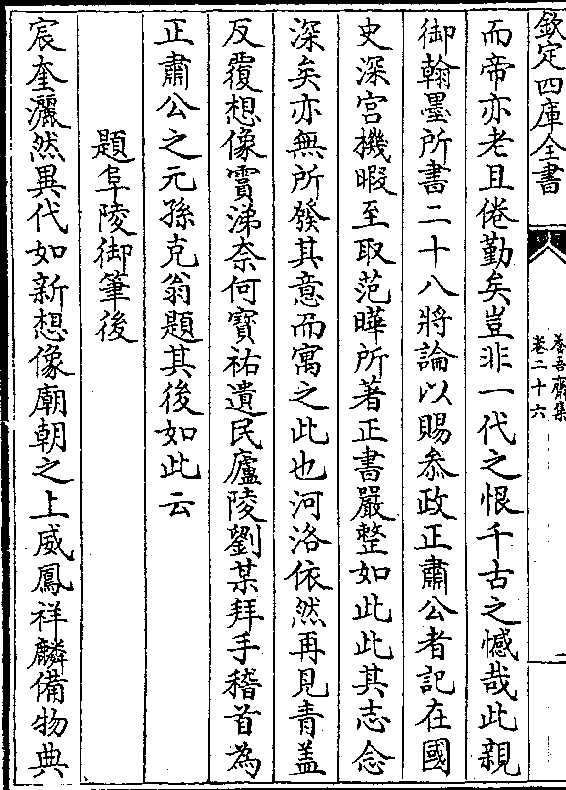 欽定四庫全書
養吾齋集
卷二十六
二
而帝亦老且倦勤矣豈非一代之恨千古之憾哉此親
御翰墨所書二十八將論以賜叅政正肅公者記在國
史深宫機暇至取范曄所著正書嚴整如此此其志念
深矣亦無所發其意而寓之此也河洛依然再見青盖
反覆想像䨏涕奈何寳祐遺民廬陵劉某拜手稽首為
正肅公之元孫克翁題其後如此云
題阜陵御筆後
宸奎灑然異代如新想像廟朝之上威鳳祥麟備物典